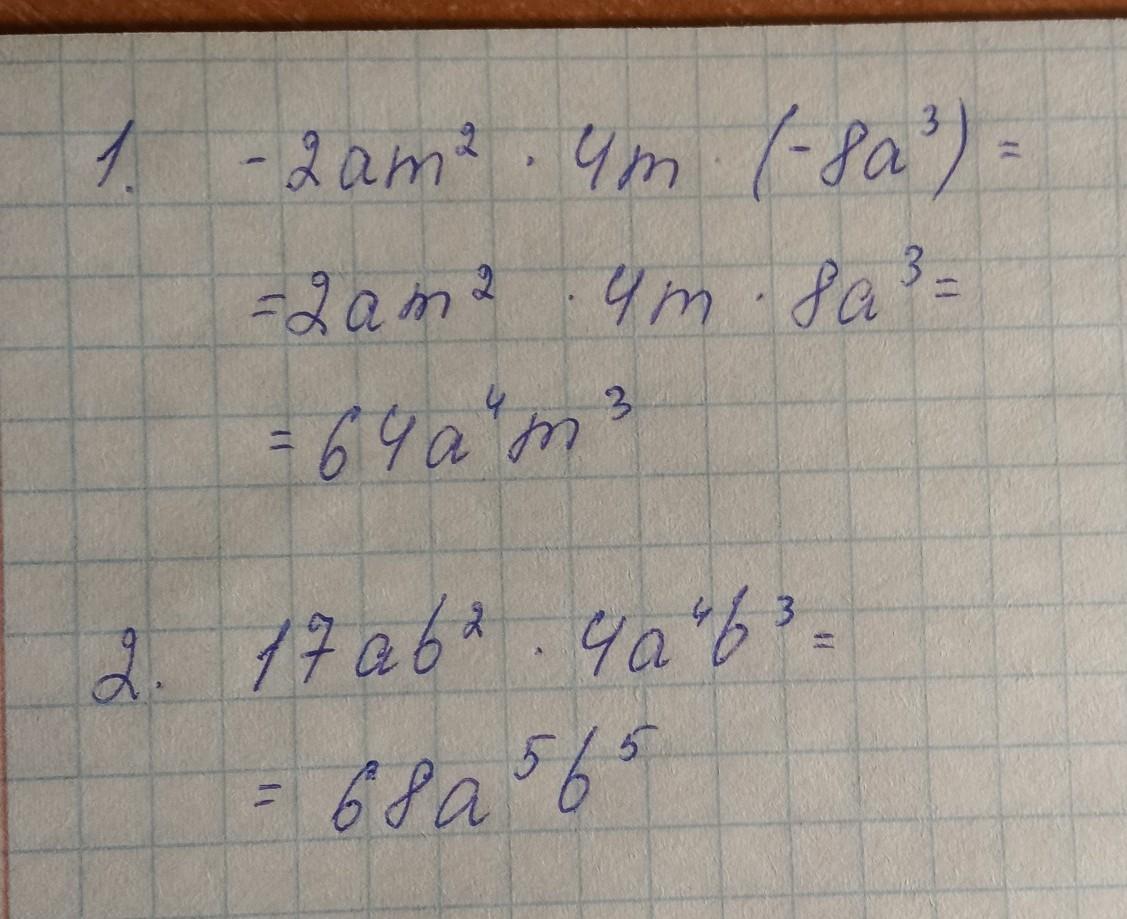 1. -2am² · 4m · (-8a³) =
=2am² · 4m · 8a³=
= 64a⁴m³
2. 17ab² · 4a⁴b³=
= 68a⁵b⁵